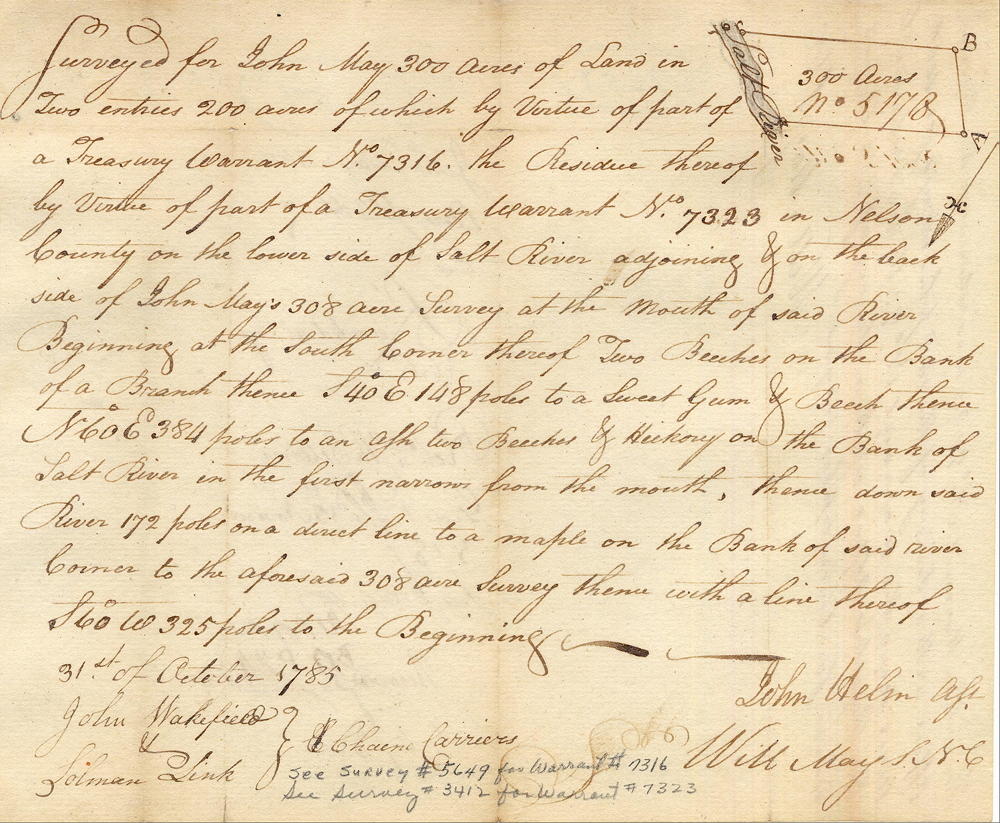 Surveyed for John May 300 acres of Land in
Two entries 200 acres of which by Virtue of part of
a Treasury Warrant No. 7316. the Residue thereof
by Virtue of part of a Treasury Warrant No. 7323 in Nelson
County on the lower side of Salt River adjoining & on the back
side of John May's 308 acre Survey at the Mouth of said River
Beginning at the South Corner thereof Two Beeches on the Bank
of a Branch thence S40°E 148 poles to a Sweet Gum & Beech thence
N60°E 384 poles to an ash two Beeches & Hickory on the Bank of
Salt River in the first narrows from the mouth, thence down said
River 172 poles on a direct line to a maple on the Bank of said river
Corner to the aforesaid 308 acre Survey thence with a line thereof
S60°W 325 poles to the Beginning
31st of October 1785
John Wakefield
&
Solman Link
Chain Carriers
John Helm Ast.
Will May S.N.C
See Survey # 5649 for Warrant # 7316
See Survey # 3412 for Warrant # 7323
Salt River
300 Acres
No 5178
B
A